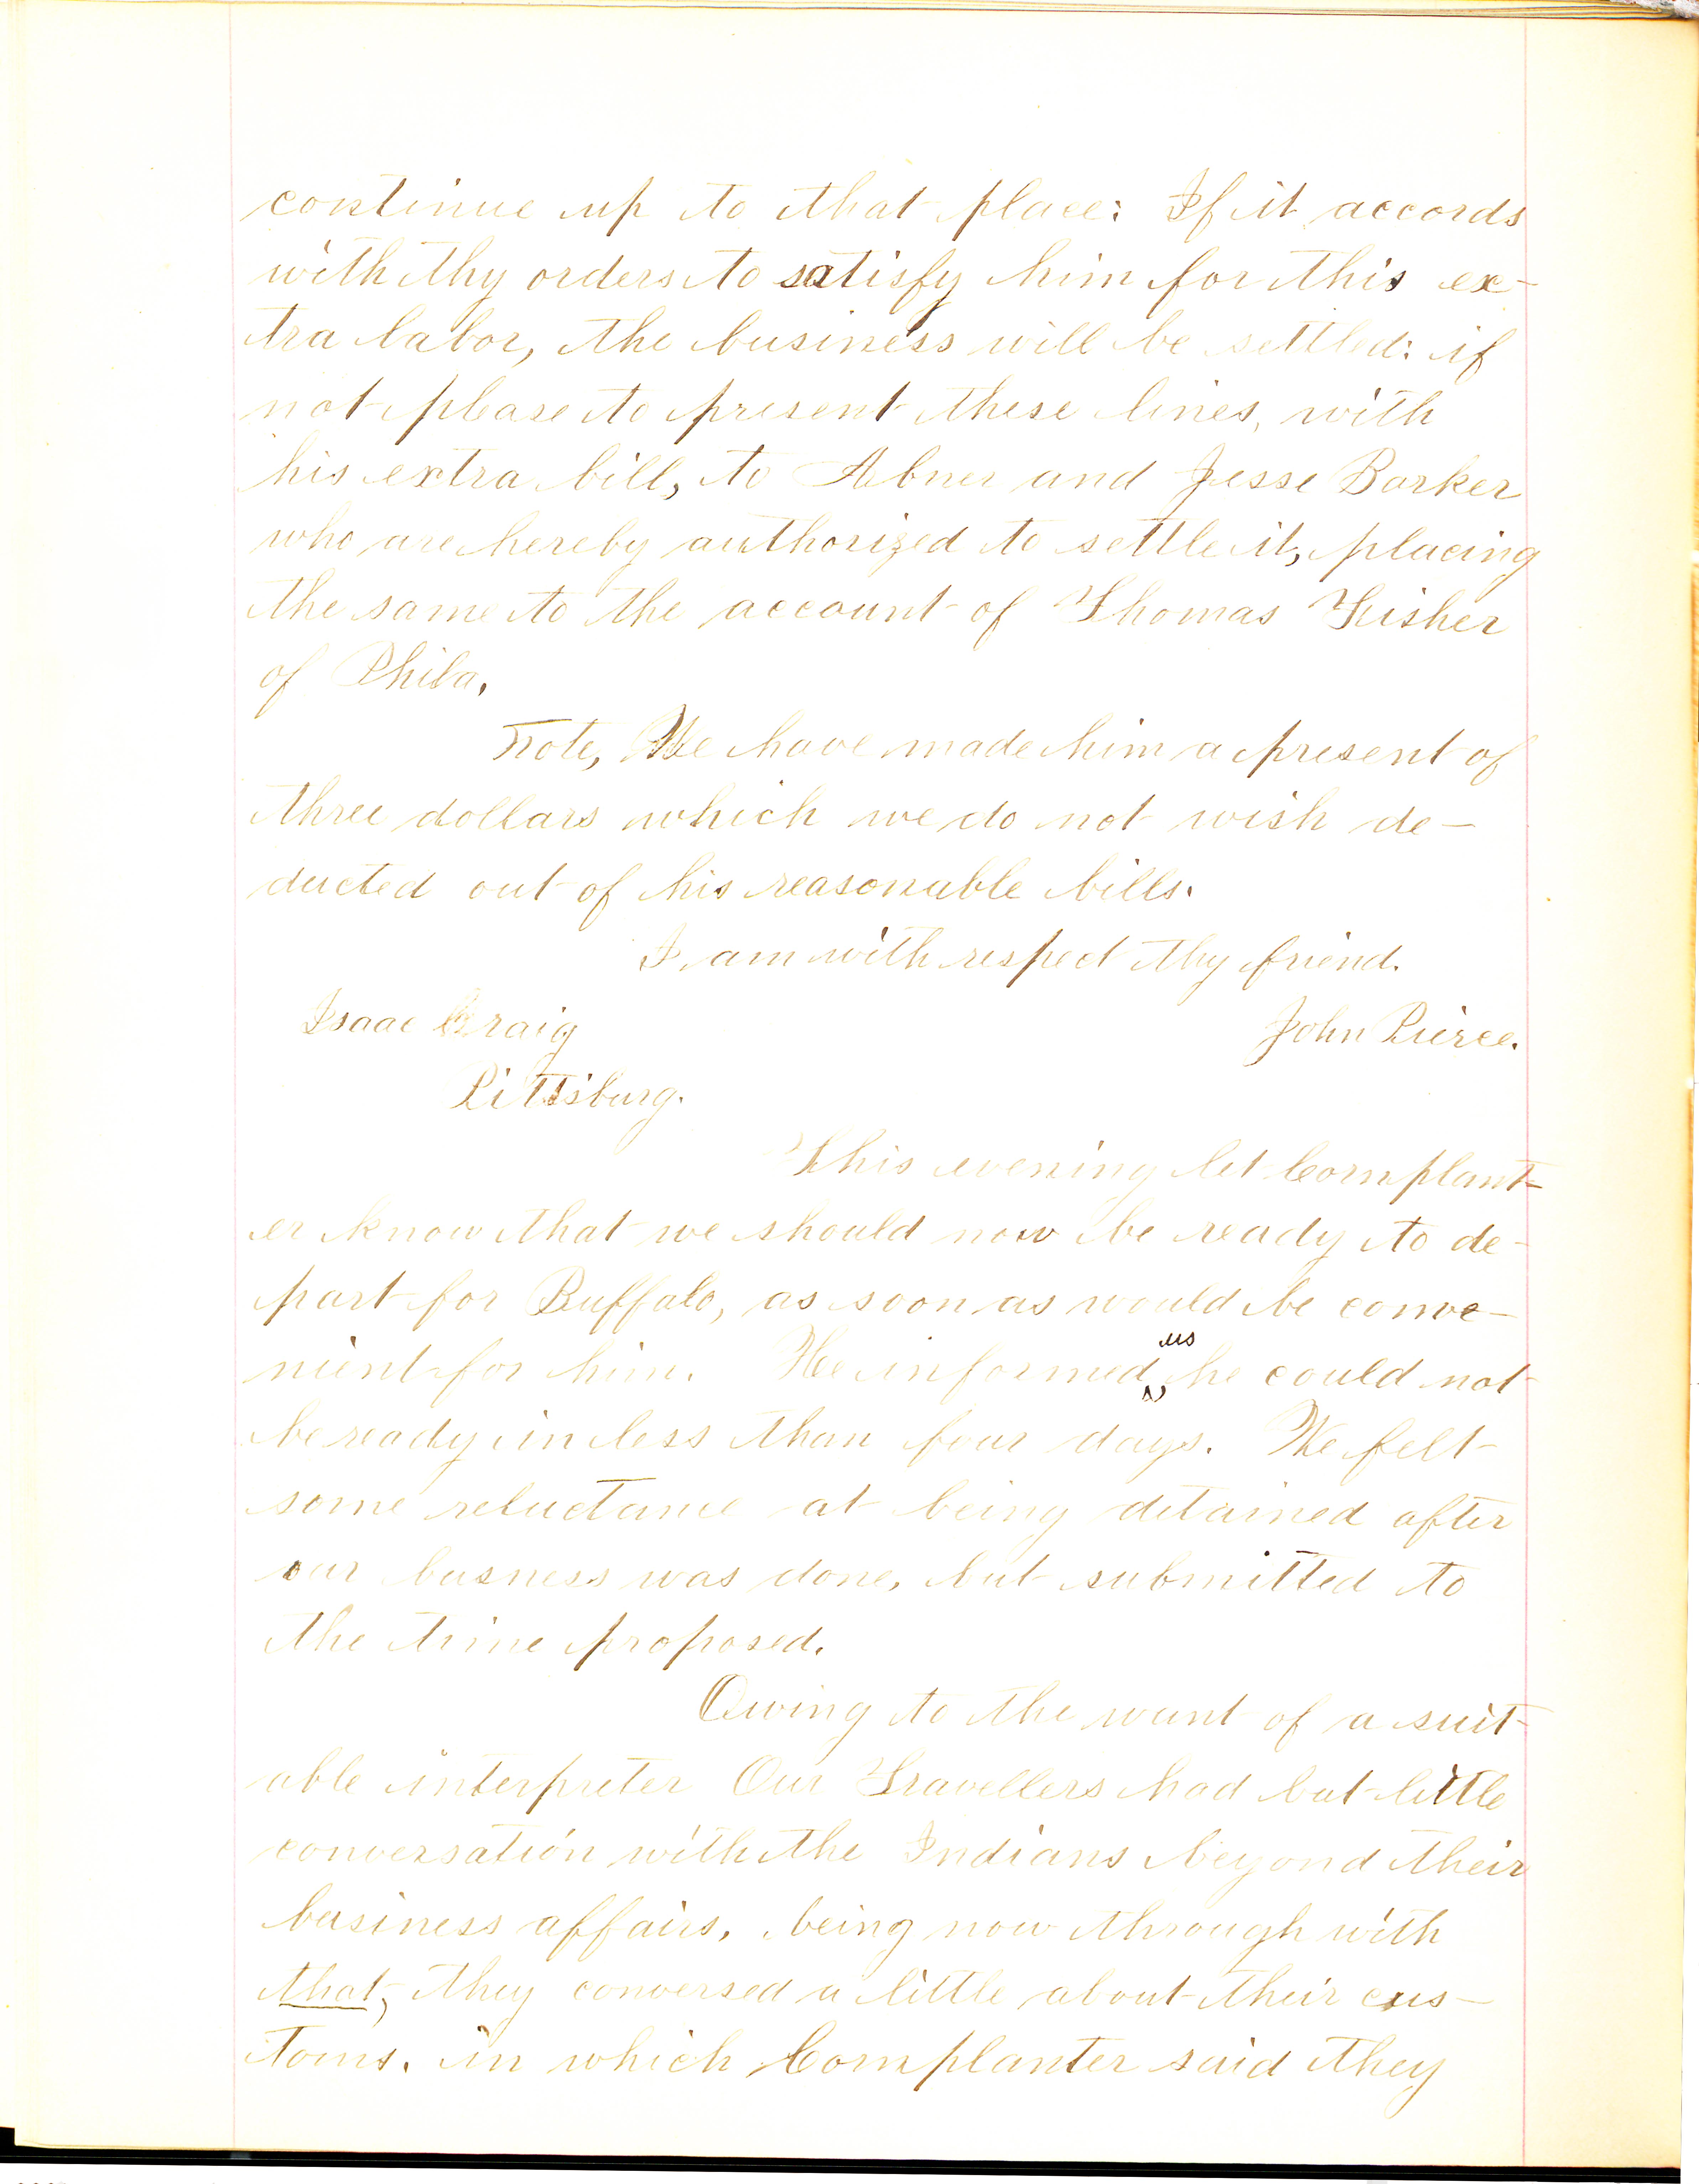 continue up to that place: If it accords
with thy orders to satisfy him for this ex-
tra labor, the business will be settled: if
not please to present these lines, with
his extra bill, to Abner and Jesse Barker
who are hereby authorized to settle it, placing
the same to the account of Thomas Fisher
of Phila.
Note, We have made him a present of
three dollars which we do not wish de-
ducted out of his reasonable bills.
I am with respect thy friend.
Isaac Craig John Pierce.
Pittsburg.
This evening let Cornplant-
er know that we should now be ready to de-
part for Buffalo, as soon as would be conve-
nient for him. He informed us he could not
be ready in less than four days. We felt
some reluctance at being detained after
our busness was done, but submitted to
the time proposed.
Owing to the want of a suit-
able interpreter Our Travellers had but little
conversation with the Indians beyond their
business affairs, being now through with
that, they conversed a little about their cus-
toms. in which Cornplanter said they